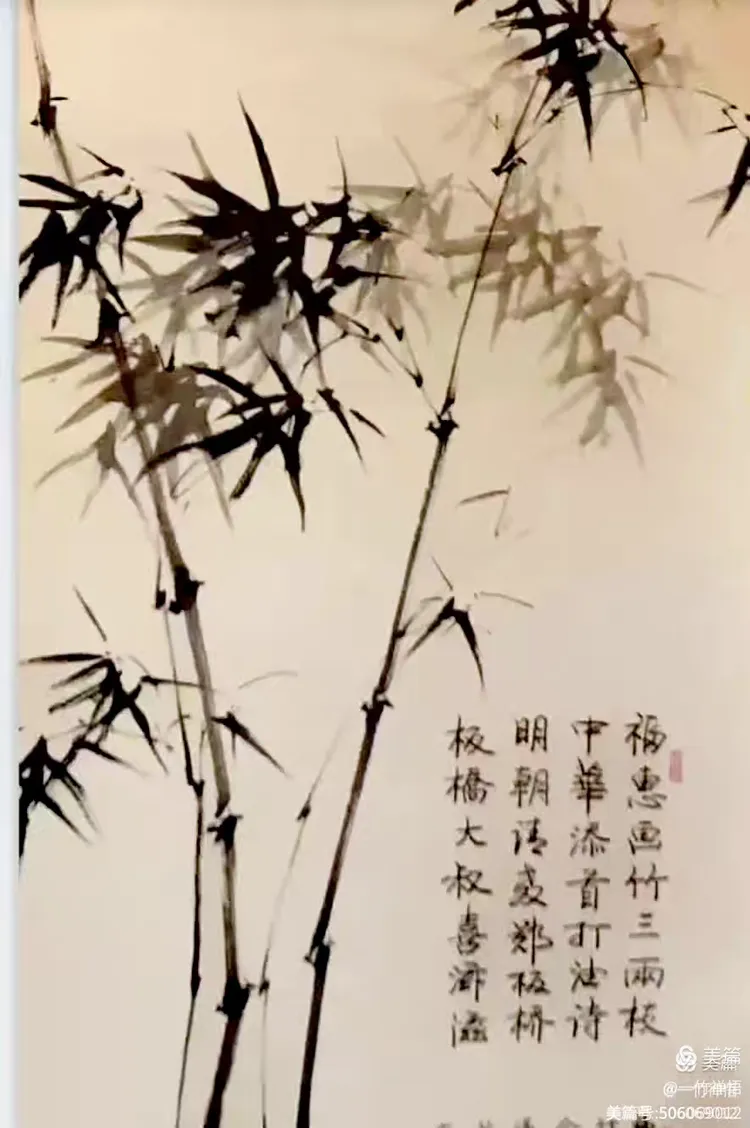 福惠画竹三兩枝
中華添首打油诗
明朝请郑板桥
板橋大叔喜滋滋
美篇
@一竹禅悟
美篇号:506069012